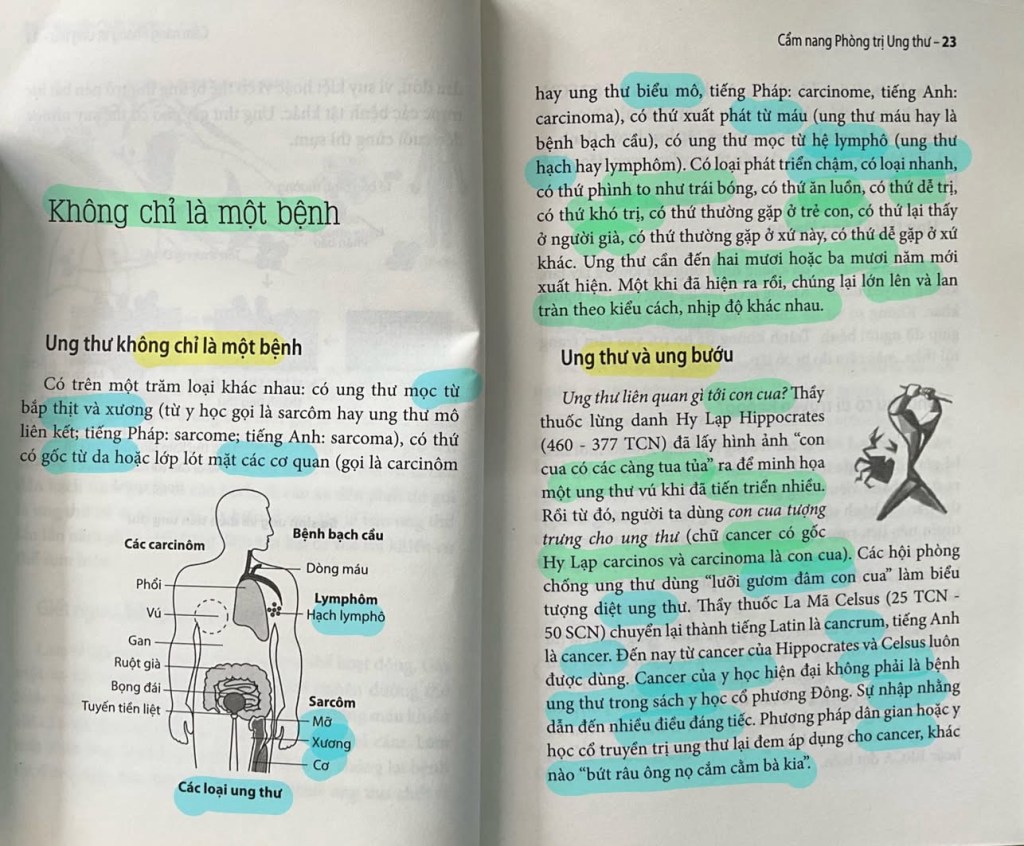 Không chỉ là một bệnh
Ung thư không chỉ là một bệnh
Có trên một trăm loại khác nhau: có ung thư mọc từ
bắp thịt và xương (từ y học gọi là sarcôm hay ung thư mô
liên kết; tiếng Pháp: sarcome; tiếng Anh: sarcoma), có thứ
có gốc từ da hoặc lớp lót mặt các cơ quan (gọi là carcinôm
Các carcinôm
Phổi
Vú
Gan
Ruột già
Bọng đái
Tuyến tiền liệt
Bệnh bạch cầu
Dòng máu
Lymphôm
Hạch lymphô
Sarcôm
Mỡ
Xương
Cơ
Các loại ung thư
Cẩm nang Phòng trị Ung thư – 23
hay ung thư biểu mô, tiếng Pháp: carcinome, tiếng Anh:
carcinoma), có thứ xuất phát từ máu (ung thư máu hay là
bệnh bạch cầu), có ung thư mọc từ hệ lymphô (ung thư
hạch hay lymphôm). Có loại phát triển chậm, có loại nhanh,
có thứ phình to như trái bóng, có thứ ăn luồn, có thứ dễ trị,
có thứ khó trị, có thứ thường gặp ở trẻ con, có thứ lại thấy
ở người già, có thứ thường gặp ở xứ này, có thứ dễ gặp ở xứ
khác. Ung thư cần đến hai mươi hoặc ba mươi năm mới
xuất hiện. Một khi đã hiện ra rồi, chúng lại lớn lên và lan
tràn theo kiểu cách, nhịp độ khác nhau.
Ung thư và ung bướu
Ung thư liên quan gì tới con cua? Thầy
thuốc lừng danh Hy Lạp Hippocrates
(460 - 377 TCN) đã lấy hình ảnh “con
cua có các càng tua tủa” ra để minh họa
một ung thư vú khi đã tiến triển nhiều.
Rồi từ đó, người ta dùng con cua tượng
trưng cho ung thư (chữ cancer có gốc
Hy Lạp carcinos và carcinoma là con cua). Các hội phòng
chống ung thư dùng “lưỡi gươm đâm con cua” làm biểu
tượng diệt ung thư. Thầy thuốc La Mã Celsus (25 TCN -
50 SCN) chuyển lại thành tiếng Latin là cancrum, tiếng Anh
là cancer. Đến nay từ cancer của Hippocrates và Celsus luôn
được dùng. Cancer của y học hiện đại không phải là bệnh
ung thư trong sách y học cổ phương Đông. Sự nhập nhằng
dẫn đến nhiều điều đáng tiếc. Phương pháp dân gian hoặc y
học cổ truyền trị ung thư lại đem áp dụng cho cancer, khác
nào “bứt râu ông nọ cắm cằm bà kia”.